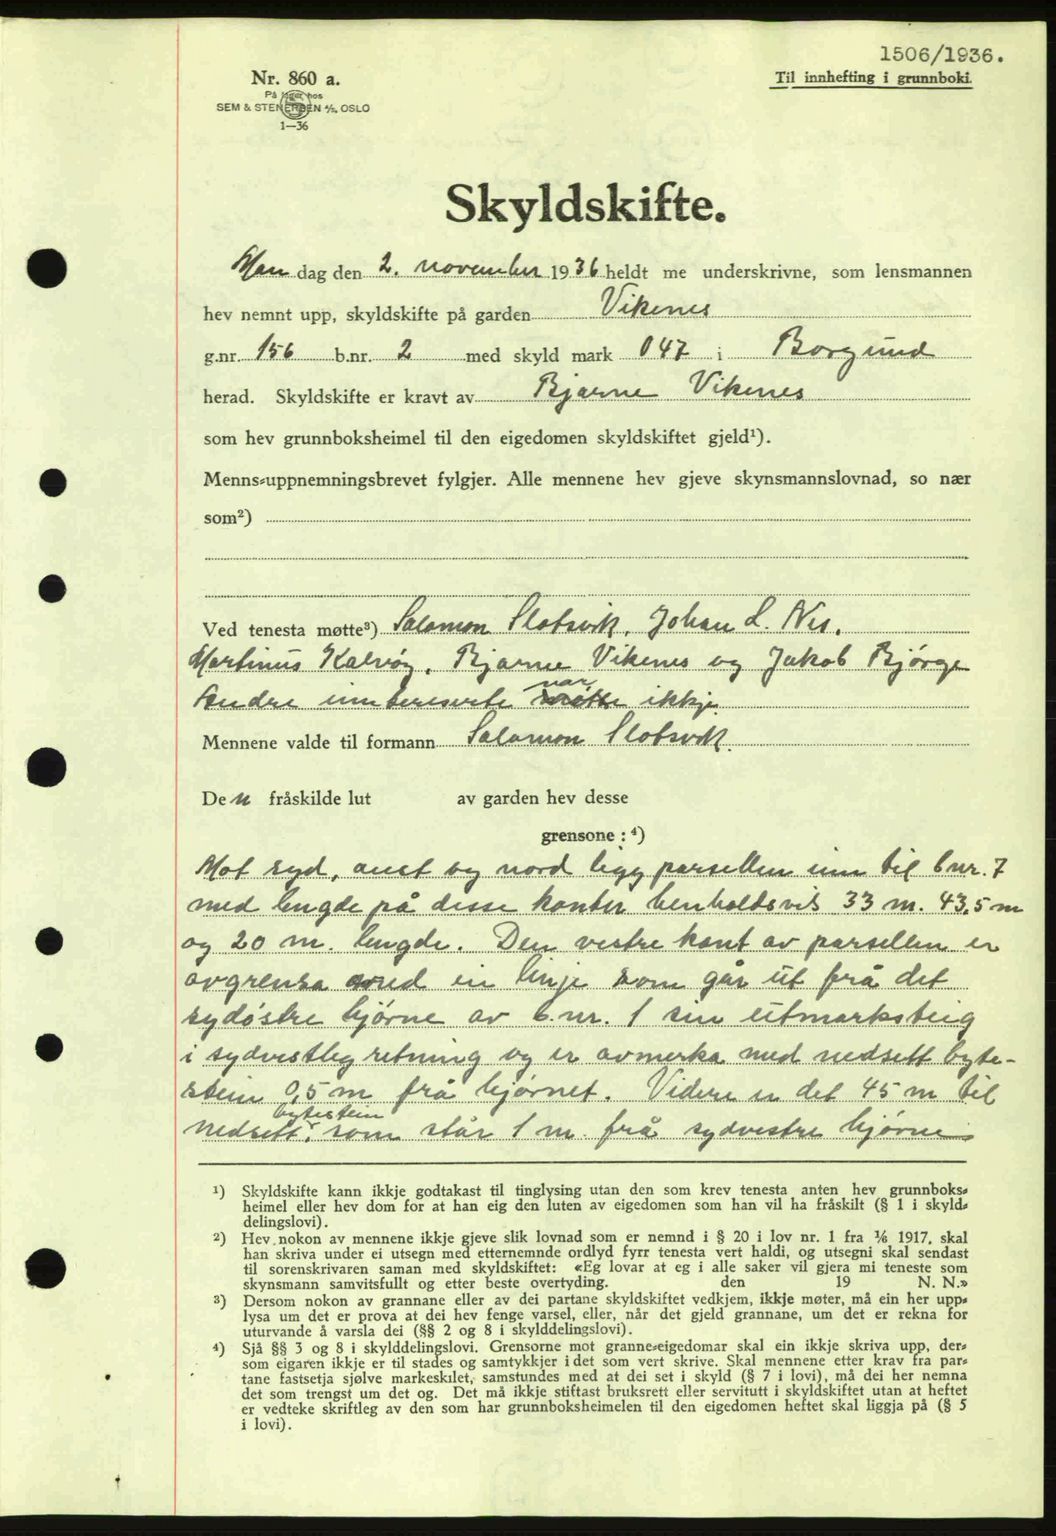 1506/1936.
Nr. 860 a.
Til innhefting i grunnboki.
På lager hos
SEM & STENERSEN A/S, OSLO
1—36
Skyldskifte.
Man dag den 2. november 1936 heldt me underskrivne, som lensmannen
hev nemnt upp, skyldskifte på garden Vikenes
g.nr. 156 b.nr. 2 med skyld mark 047 i Borgund
herad. Skyldskifte er kravt av Bjarne Vikenes
som hev grunnboksheimel til den eigedomen skyldskiftet gjeld¹).
Menns-uppnemningsbrevet fylgjer. Alle mennene hev gjeve skynsmannslovnad, so nær
som²)
Ved tenesta møtte³) Salamon Slotsvik, Johan L. Nes,
Martinus Kalvøy, Bjarne Vikenes og Jakob Bjørge
Andre interesserte var ikkje.
Mennene valde til formann Salamon Slotsvik.
Den fråskilde lut av garden hev desse
grensone: ⁴)
Mot syd, aust og nord ligg parsellen inn til b.nr. 7
med lengde på desse kanter henholdsvis 33 m. 43,5 m
og 20 m. lengde. Den vestre kant av parsellen er
avgrensa med ein linje som går ut frå det
sydøstre hjørne av b.nr. 1 sin utmarksteig
i sydvestleg retning og er avmerka med nedsett byte-
stein 0,5 m frå hjørnet. Videre er det 45 m til
nedsett bytestein som står 1 m. frå sydvestre hjørne
¹) Skyldskifte kann ikkje godtakast til tinglysing utan den som krev tenesta anten hev grunnboks-
heimel eller hev dom for at han eig den luten av eigedomen som han vil ha fråskilt (§ 1 i skyld-
delingslovi).
²) Hev nokon av mennene ikkje gjeve slik lovnad som er nemnd i § 20 i lov nr. 1 fra 1/6 1917, skal
han skriva under ei utsegn med etternemnde ordlyd fyrr tenesta vert haldi, og utsegni skal sendast
til sorenskrivaren saman med skyldskiftet: «Eg lovar at eg i alle saker vil gjera mi teneste som
skynsmann samvitsfullt og etter beste overtyding. den 19 N. N.»
³) Dersom nokon av grannane eller av dei partane skyldskiftet vedkjem, ikkje møter, må ein her upp-
lysa um det er prova at dei hev fenge varsel, eller, når det gjeld grannane, um det er rekna for
uturvande å varsla dei (§§ 2 og 8 i skylddelingslovi).
⁴) Sjå §§ 3 og 8 i skylddelingslovi. Grensorne mot granne-eigedomar skal ein ikkje skriva upp, der-
som eigaren ikkje er til stades og samtykkjer i det som vert skrive. Skal mennene etter krav fra par-
tane fastsetja sjølve markeskilet, samstundes med at dei set i skyld (§ 7 i lovi), må dei her nemna
det som trengst um det og. Det må ikkje stiftast bruksrett eller servitutt i skyldskiftet utan at heftet
er vedteke skriftleg av den som har grunnboksheimelen til den eigedomen heftet skal liggja på (§ 5
i lovi).